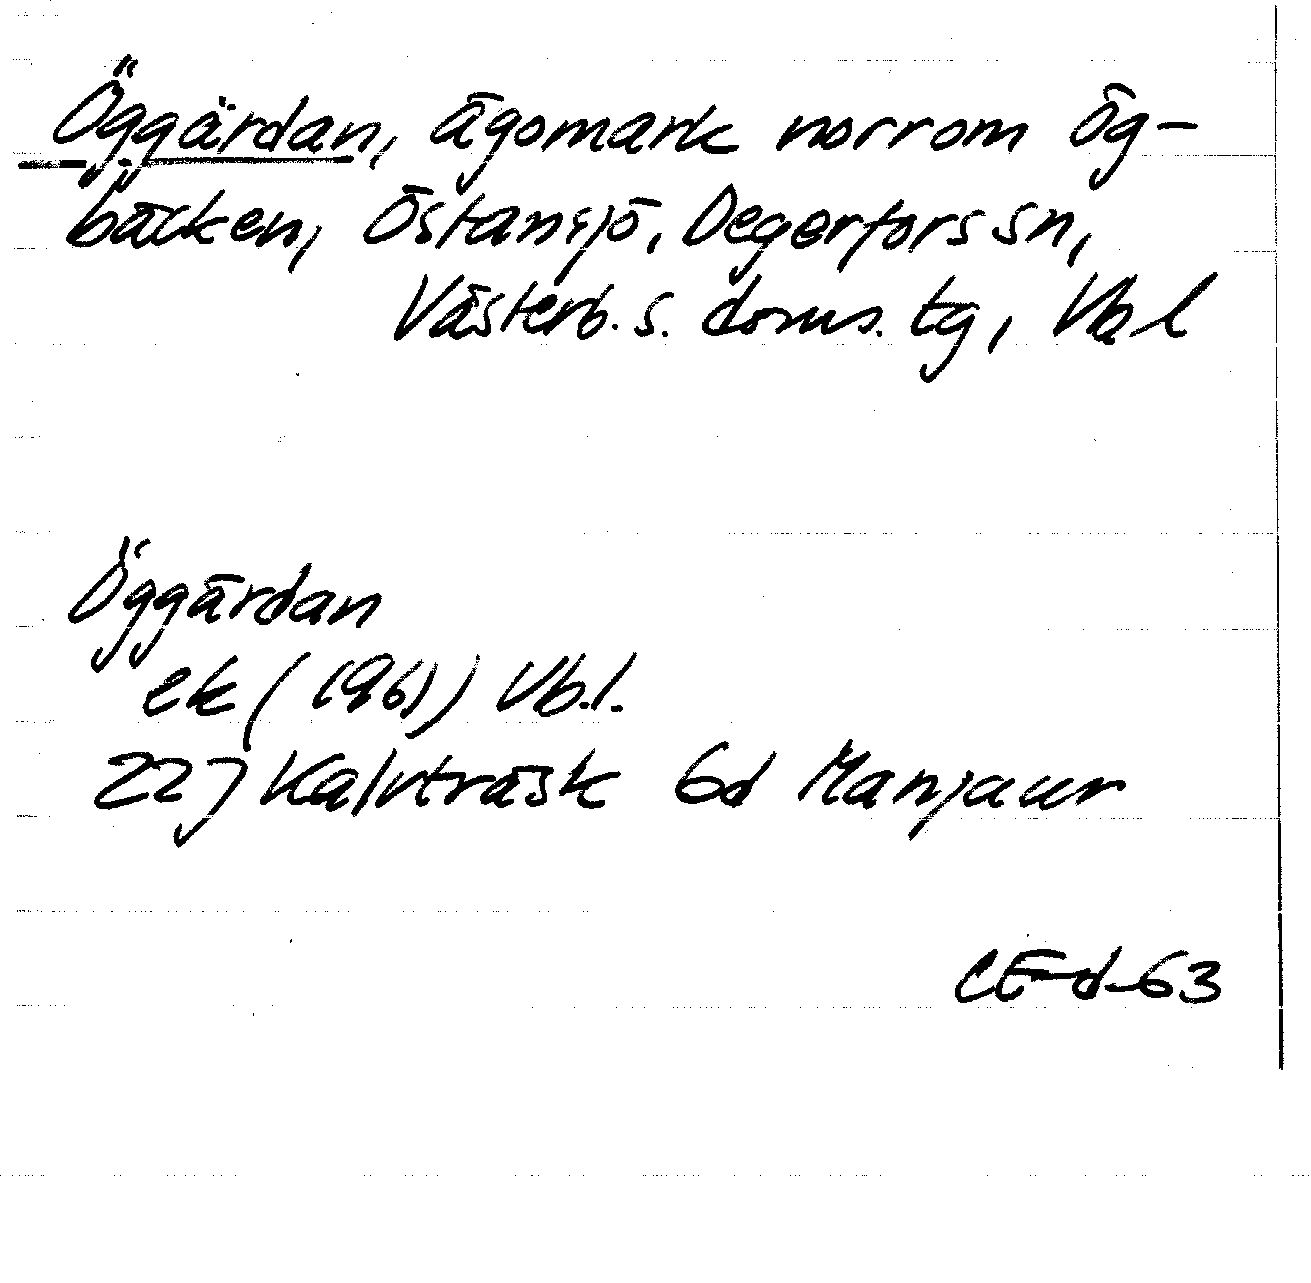 Öggärdan, ägomark norrom Ög-
bäcken, Östansjö, Degerfors sn,
Västerb. s. doms. tg, Vb. l
Öggärdan
ek (1961) Vb.l.
22J Kalvträsk 6d Manjaur
CE-d-63